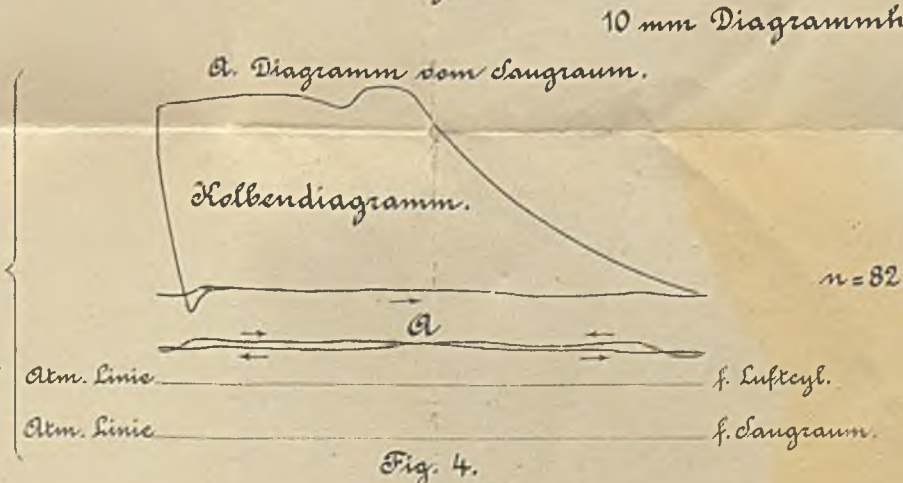 10 mm Diagrammh
A. Diagramm vom Saugraum.
Kolbendiagramm.
n=82
A
Atm. Linie f. Luftcyl.
Atm. Linie f. Saugraum.
Fig. 4.